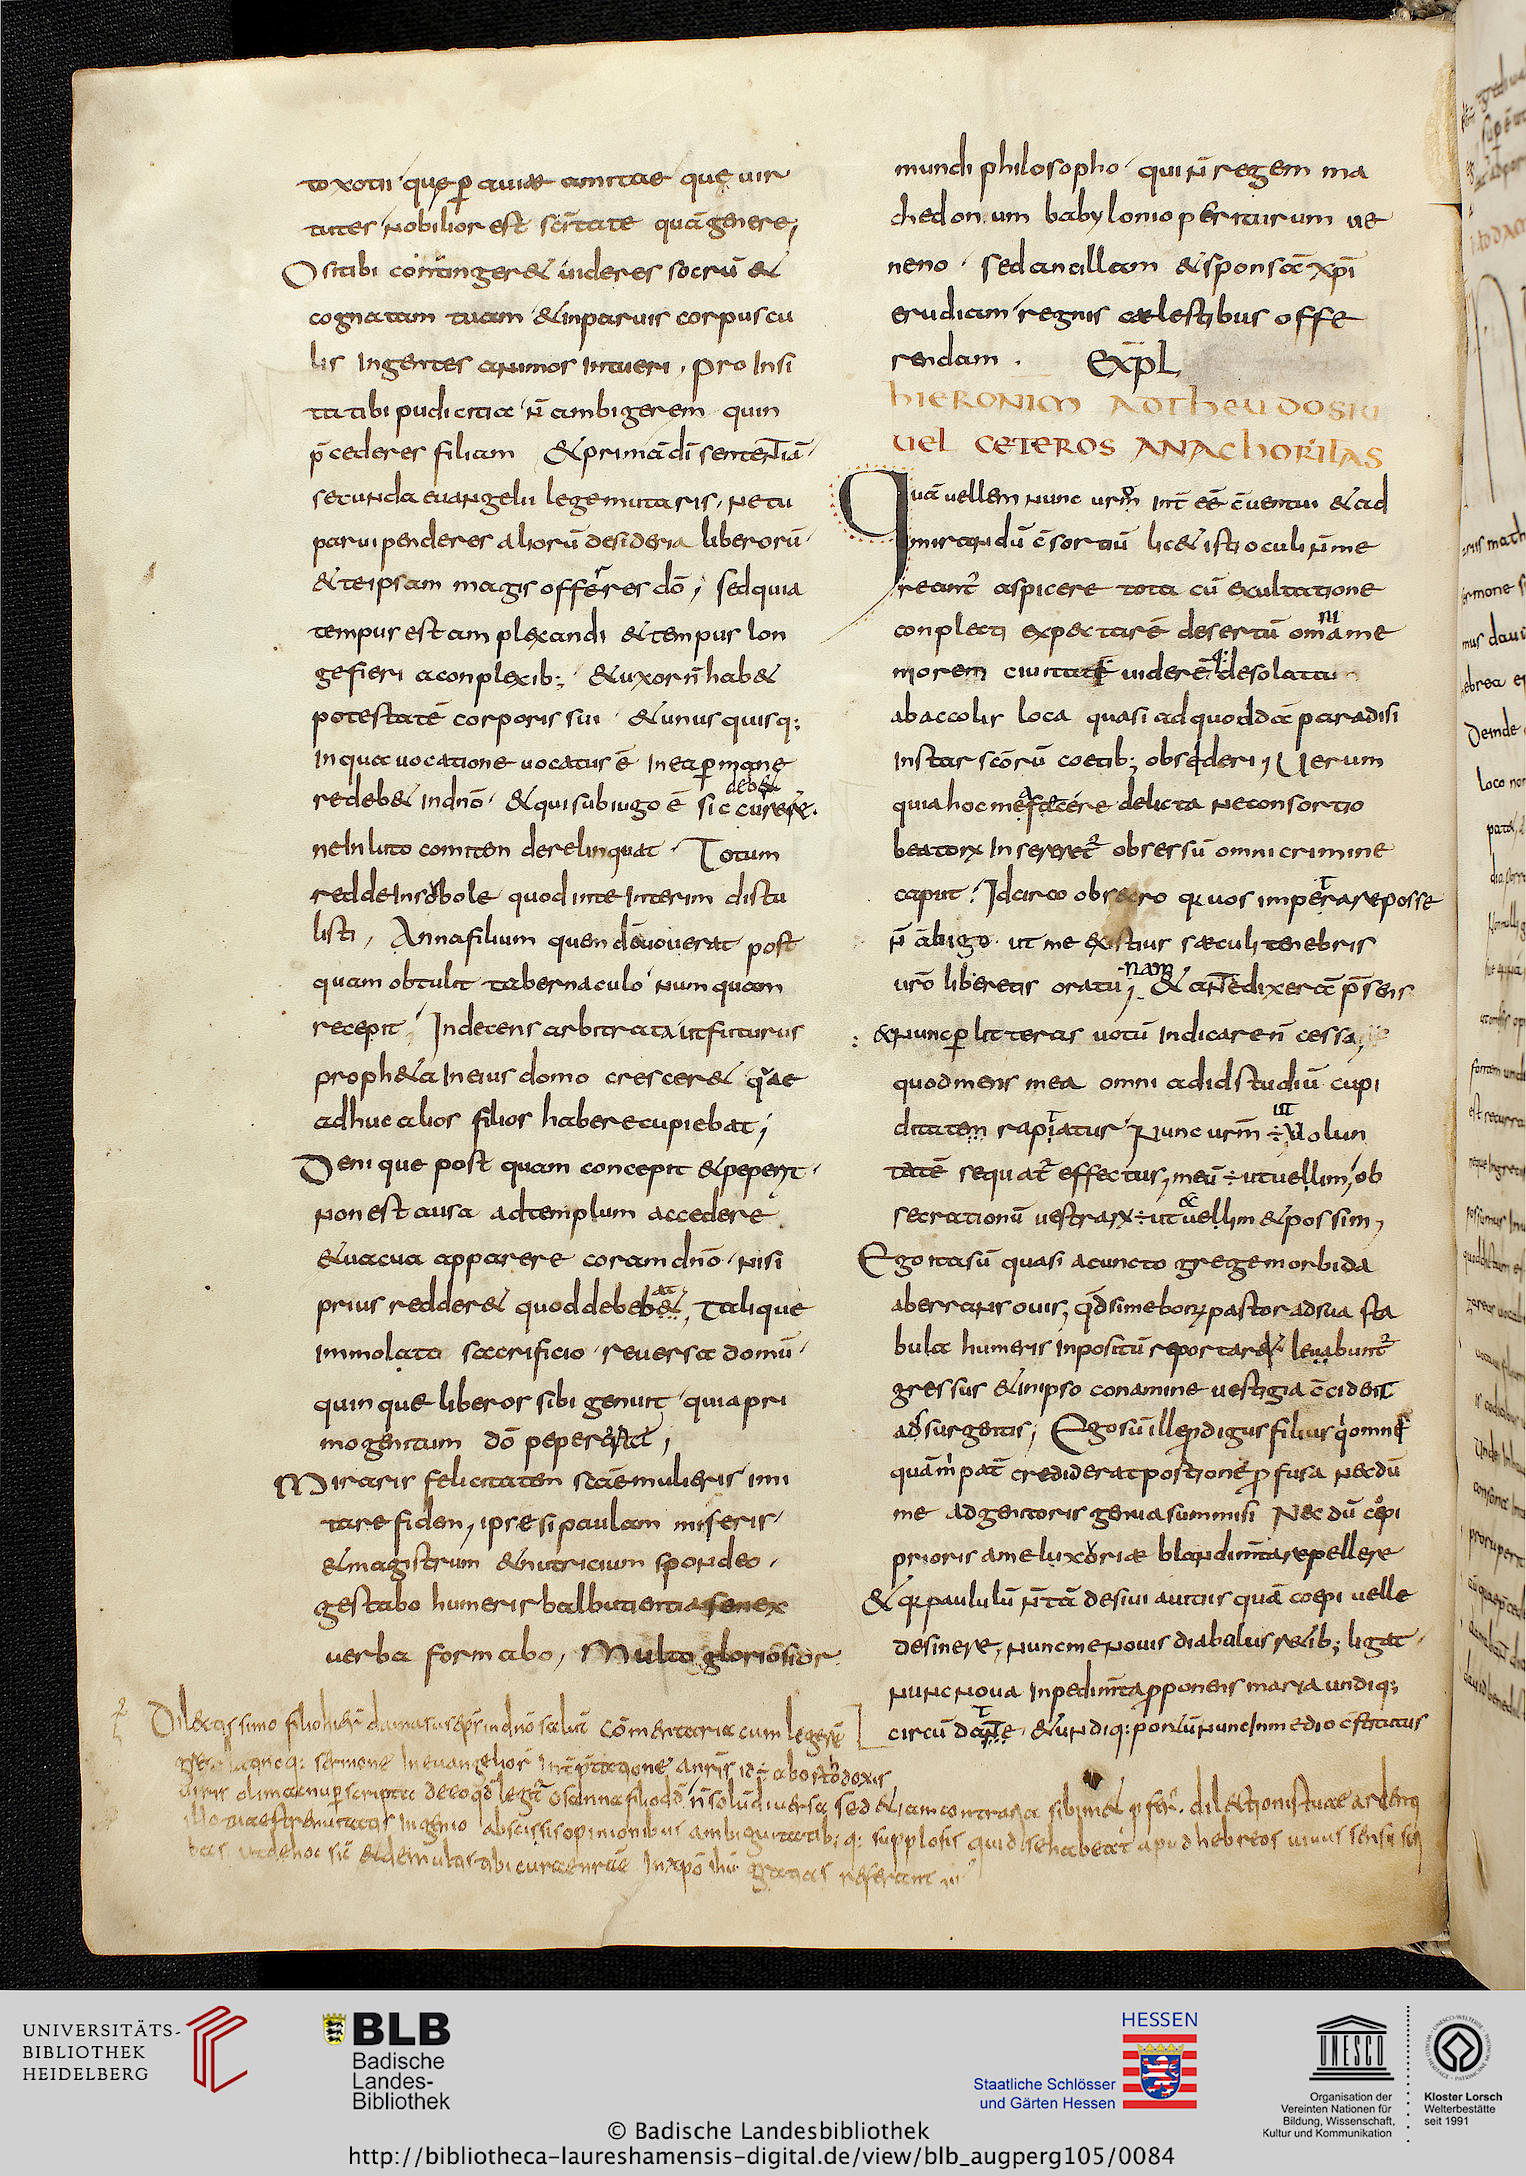 toxotii que p̄ auiae amitae que uir
tutes nobilior est sc̄itate quā genere,
O si tibi contingeret uideres socrū &
cognatam tuam & inparuis corpuscu
lis Ingentes animos Intueri. pro Insi
ta tibi pudicitia n̄ ambigerem quin
p̄cederes filiam & primā dī sententiā
secunda euangelii lege mutaris. ne tu
paruipenderes aliorū desideria liberorū
& teipsam magis offerres dō; sed quia
tempus est amplexandi & tempus lon
ge fieri a conplexib; & uxor n̄ hab&
potestatē corporis sui & unus quisq;
In qua uocatione uocatus ē In ea p̄mane
re deb& In dnō & qui sub iugo ē sic currere deb&
ne In luto comitem derelinquat. Totum
redde In sobole quod in te Interim distu
listi, Anna filium quem deuouerat post
quam obtulit tabernaculo numquam
recepit. Indecens arbitrata ut futurus
proph&a In eius domo cresceret quae
adhuc alios filios habere cupiebat;
Denique post quam concepit & peperit.
Non est ausa ad templum accedere
& uacua apparere coram dnō. nisi
prius redderet quod debebat, Talique
Immolata sacrificio. reuersa domū.
quinque liberos sibi genuit quia pri
mogenitum dō pepererat,
Miraris felicitatem scāe mulieris imi
tare fidem, ipse si paulam miseris
& magistrum & nutricium spondeo.
gestabo humeris balbutientia senex
uerba formabo, Multo gloriosior
mundi philosopho qui n̄ regem ma
chedonum babylonio periturum ue
neno. sed ancillam & sponsā xpī
erudiam regnis caelestibus offe
rendam. EXPL
HIERONIM AD THEUDOSIU
UEL CETEROS ANACHORITAS
Quā uellem nunc urm̄ int̄ eē c̄uentui & ad
mirandū c̄sortiū lic& isti oculi n̄ me
reant̄ aspicere tota cū exultatione
conplecti expectarē desertū omni ame
morem ciuitate uiderē desolatu
ab accolis loca quasi ad quoddā paradisi
Instar scōrū coetib; obsederi, Uerum
quia hoc mea fecere delicta ne consortio
beatorx Inserer&̄ obsessū omni crimine
caput. Idcirco obsecro quos imperare posse
n̄ ābigo. ut me ex istius saeculi tenebris
urō liberetis oratu; nam & ante dixerā p̄sens
& nunc p̄ litteras uotū Indicare n̄ cessa,
quod mens mea omni ad id studiū cupi
ditatem rapiatur. Nunc urm̄ ÷ ut Uolun
tatē sequat̄ effectus, meū ÷ ut uellim, ob
secrationū uestrarx ÷ ut & uellim & possim,
Ego ita sū quasi a cuncto grege morbida
aberrans ouis, qd̄ si me bonus pastor ad sua sta
bula humeris inpositū reportar& leuabunt̄
gressus & in ipso conamine uestigia c̄cident
adsurgentis; Ego sū ille prodigus filius qui omne
quā mi pat̄ crediderat portionē p̄fusa necdū
me ad gentoris genua summisi Nec dū coepi
prioris a me luxoriae blandimt̄a repellere
& quia paululū n̄ tā desiui auitiis quā coepi uelle
desinere, nunc me nouis diabulus retib; ligat.
nunc noua Inpedimt̄a p̄ponens maria undiq;
circū dante & undiq; pontū nunc Inmedio c̄stitutus
Dilectissimo filio hier̄ damasus ep̄s in dn̄o salut̄ Cōmentaria cum legerē
grecho latinoq: sermone In euangelior Int̄p̄tatione a nr̄is id ÷ ab ortodoxis
uiris olim ac nup̄ scripta de eo qd̄ legit̄ osanna filio dd̄ n̄ solū diuersa sed & iam contraria sibimet p̄ferr̄. dilectionis tuae ardenti
illo uiae strenuitatis Ingenio abscissis opinionibus ambiguitatib; q: supplosis quid se habeat apud hebreos uiuus sensu
bas ut de hoc sic̄ & de multis tibi curae nr̄ae In xpō ihū gratias referant
UNIVERSITÄTS-
BIBLIOTHEK
HEIDELBERG
BLB
Badische
Landes-
Bibliothek
HESSEN
Staatliche Schlösser
und Gärten Hessen
UNESCO
Organisation der
Vereinten Nationen für
Bildung, Wissenschaft,
Kultur und Kommunikation
Kloster Lorsch
Welterbestätte
seit 1991
© Badische Landesbibliothek
http://bibliotheca-laureshamensis-digital.de/view/blb_augperg105/0084